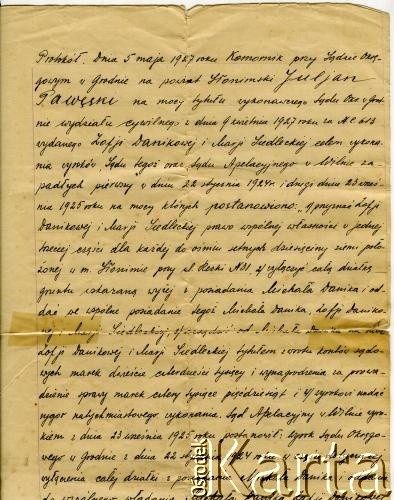 Protokół. Dnia 5 maja 1927 roku Komornik przy Sądzie Okrę-
gowym w Grodnie na powiat Słonimski Juljan
Pawęski na mocy tytułu wykonawczego Sądu Okr. w Grod-
nie wydziału cywilnego z dnia 9 kwietnia 1927 roku za N C 613
wydanego Zofji Danikowej i Marji Siedleckiej celem wykona-
nia wyroków Sądu tegoż oraz Sądu Apelacyjnego w Wilnie za-
padłych pierwszy w dniu 22 stycznia 1924 r. i drugi dnia 23 wrześ-
nia 1925 roku na mocy których postanowiono: 1) przyznać Zofji
Danikowej i Marji Siedleckiej prawo wspólnej własności w jednej
trzeciej części dla każdej do ośmiu setnych dziesięciny ziemi poło-
żonej w m. Słonimie przy ul. 2) wyłączyć całą działkę
gruntu wskazaną wyżej z posiadania Michała Danika i od-
dać we wspólne posiadanie tegoż Michała Danika, Zofji Daniko-
wej i Marji Siedleckiej, 3) zasądzić od Michała Danika na rzecz
Zofji Danikowej i Marji Siedleckiej tytułem zwrotu kosztów sądo-
wych marek dwieście czterdzieści tysięcy i wynagrodzenie za prowa-
dzenie sprawy marek cztery tysiące pięćdziesiąt i 4) wyrokowi nadać
rygor natychmiastowego wykonania. Sąd Apelacyjny w Wilnie wyro-
kiem z dnia 23 września 1925 roku postanowił: wyrok Sądu Okręgo-
wego w Grodnie z dnia 22 stycznia 1924 roku w części dotyczącej
wyłączenia całej działki z posiadania Michała Danika i oddania
do wspólnego władania Michała Danika Zofji Danikowej
Ośrodek
Karta